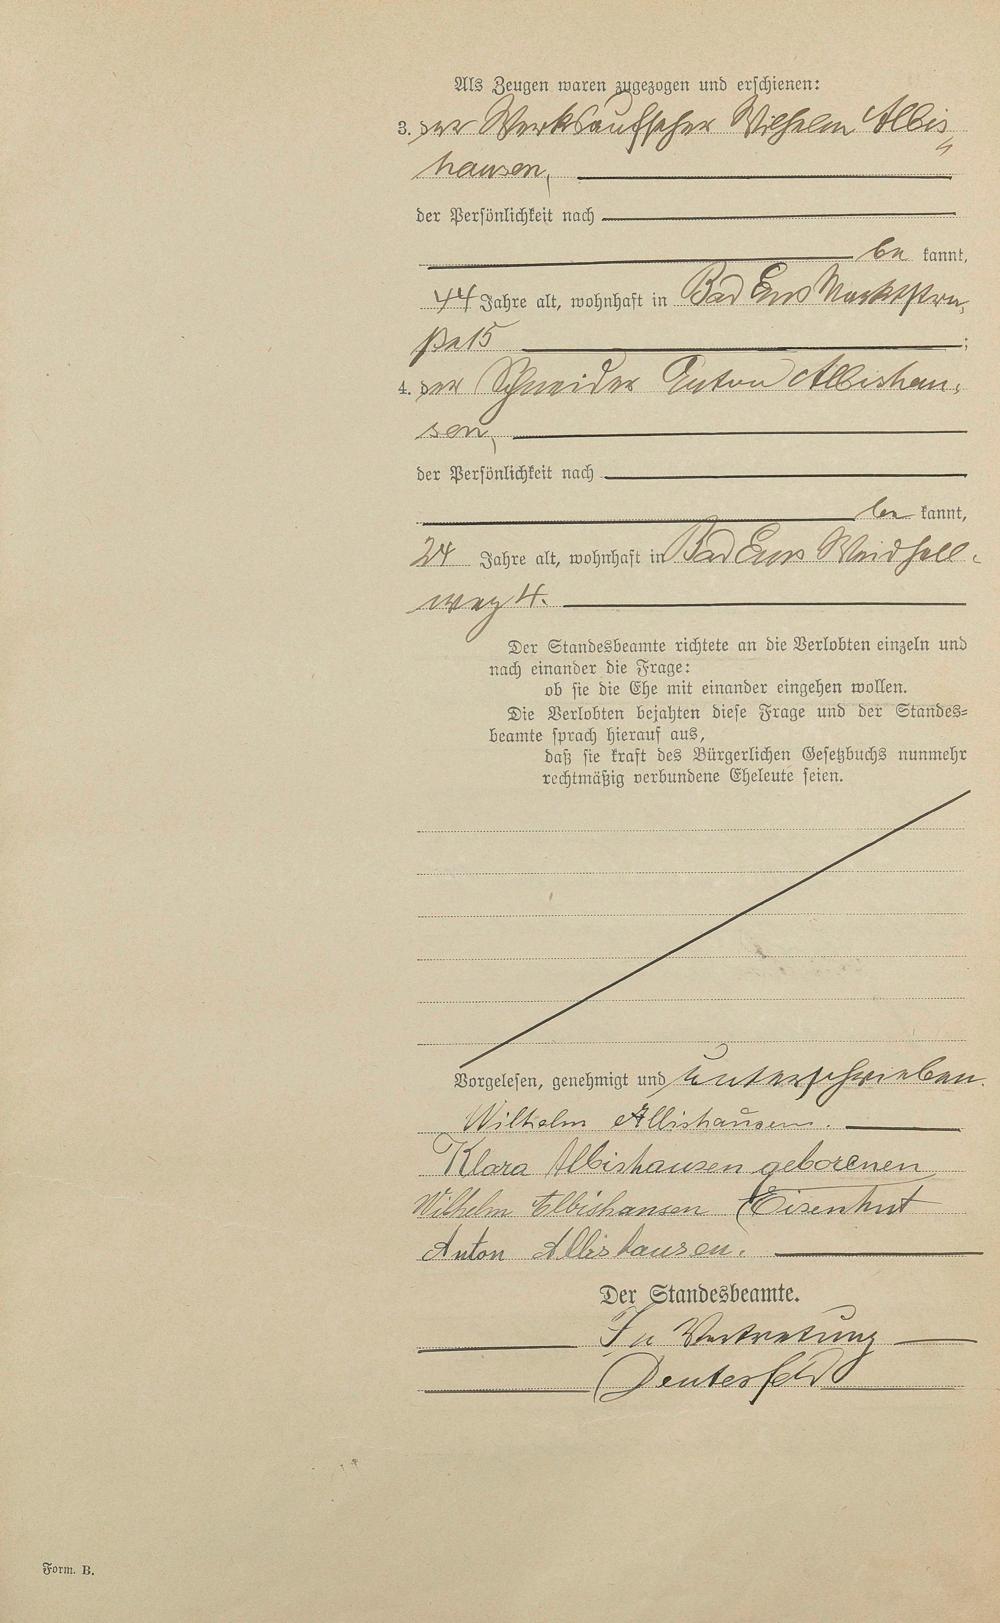 Als Zeugen waren zugezogen und erschienen:
3. der Werksaufseher Wilhelm Albis„
hausen,
der Persönlichkeit nach
be kannt,
44 Jahre alt, wohnhaft in Bad Ems Marktstra„
ße 15 ;
4. der Schneider Anton Albishau„
sen,
der Persönlichkeit nach
be kannt,
24 Jahre alt, wohnhaft in Bad Ems Windhell„
weg 4.
Der Standesbeamte richtete an die Verlobten einzeln und
nach einander die Frage:
ob sie die Ehe mit einander eingehen wollen.
Die Verlobten bejahten diese Frage und der Standes=
beamte sprach hierauf aus,
daß sie kraft des Bürgerlichen Gesetzbuchs nunmehr
rechtmäßig verbundene Eheleute seien.
Vorgelesen, genehmigt und unterschrieben.
Wilhelm Albishausen.
Klara Albishausen geborenen
Wilhelm Albishausen Eisenhut
Anton Albishausen.
Der Standesbeamte.
In Vertretung
Form. B.